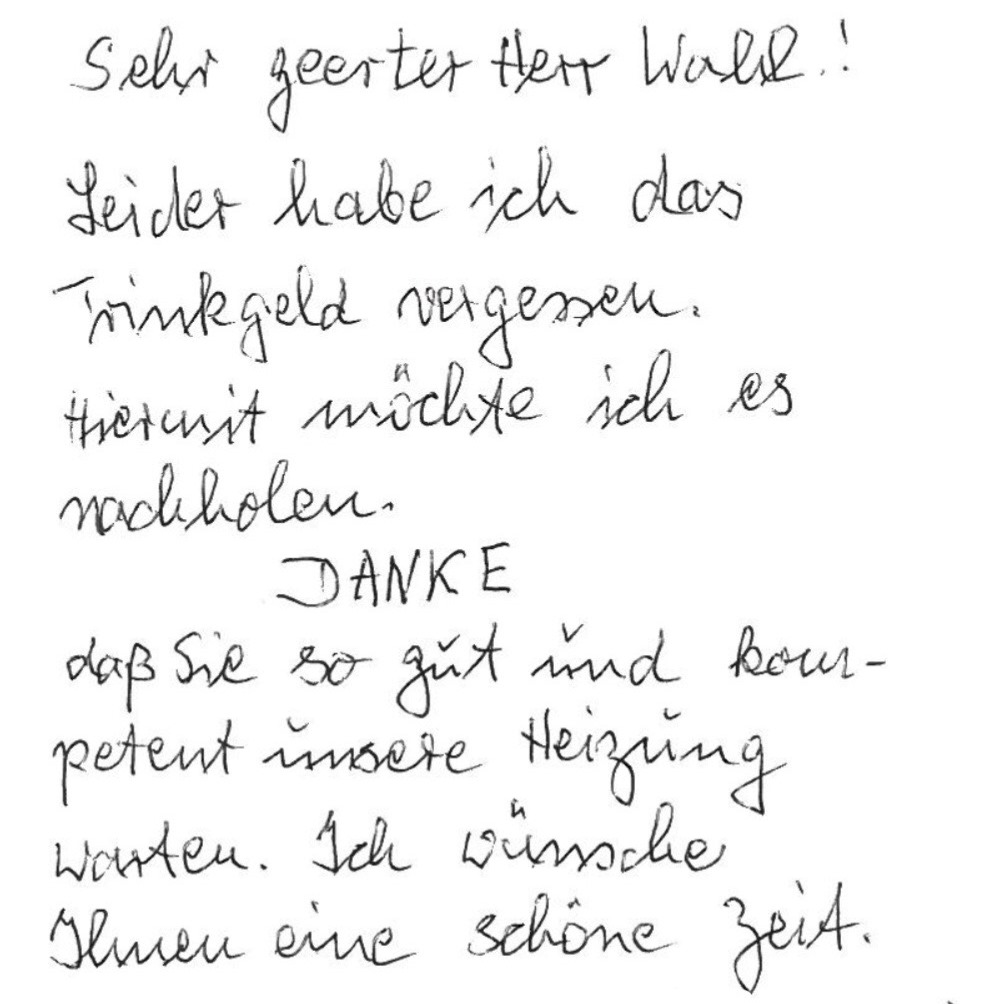 Sehr geerter Herr Wahl!
Leider habe ich das
Trinkgeld vergessen.
Hiermit möchte ich es
nachholen.
DANKE
daß Sie so gut und kom-
petent unsere Heizung
warten. Ich wünsche
Ihnen eine schöne Zeit.